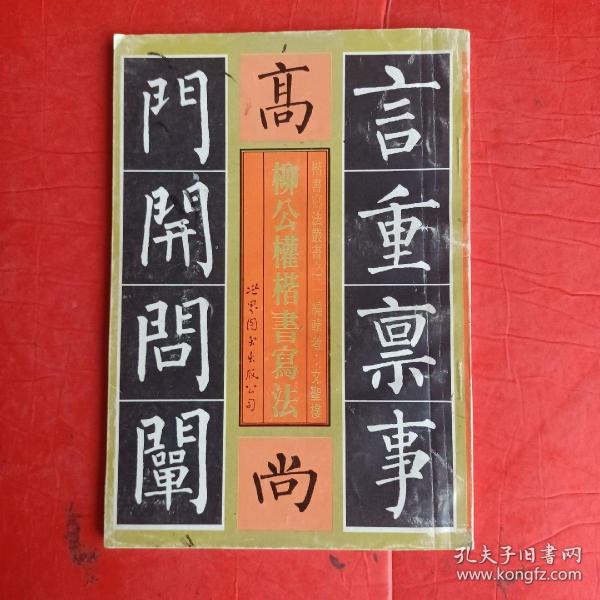 言重禀事
髙
楷書寫法叢書之
編輯者：文聖
柳公權楷書寫法
世界图书出版公司
尚
門開問闡
孔夫子旧书网
www.kongfz.com